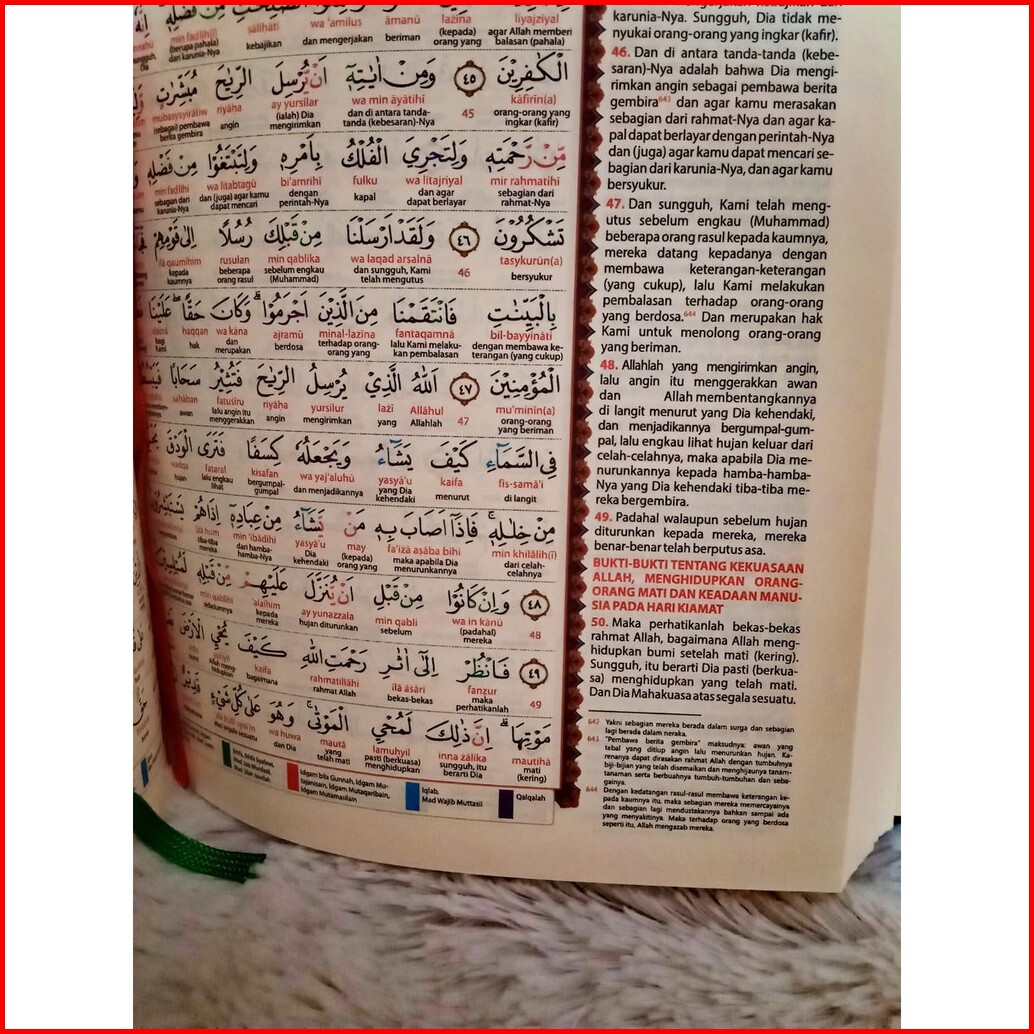 لِيَجْزِيَ
liyajziyal lażīna āmanū wa ‘amiluṣ ṣāliḥāti min faḍlih(ī)
agar Allah memberi (kepada) beriman dan mengerjakan kebajikan (berupa pahala)
balasan (pahala) orang yang dari karunia-Nya
الْكٰفِرِيْنَ ٤٥ وَمِنْ اٰيٰتِهٖٓ اَنْ يُّرْسِلَ الرِّيٰحَ مُبَشِّرٰتٍ
kāfirīn(a) 45 wa min āyātihī ay yursilar riyāḥa mubasysyirātiw
orang-orang yang dan di antara tanda- (ialah) Dia angin (sebagai) pembawa
ingkar (kafir) tanda (kebesaran)-Nya mengirimkan berita gembira
مِّنْ رَّحْمَتِهٖ وَلِتَجْرِيَ الْفُلْكُ بِاَمْرِهٖ وَلِتَبْتَغُوْا مِنْ فَضْلِهٖ
mir raḥmatihī wa litajriyal fulku bi'amrihī wa litabtagū min faḍlihī
sebagian dari dan agar kapal dengan dan (juga) agar kamu sebagian dari
rahmat-Nya dapat berlayar perintah-Nya dapat mencari karunia-Nya
تَشْكُرُوْنَ ٤٦ وَلَقَدْ اَرْسَلْنَا مِنْ قَبْلِكَ رُسُلًا اِلٰى قَوْمِهِمْ
tasykurūn(a) 46 wa laqad arsalnā min qablika rusulan ilā qaumihim
bersyukur dan sungguh, Kami sebelum engkau beberapa kepada
telah mengutus (Muhammad) orang rasul kaumnya
بِالْبَيِّنٰتِ فَانْتَقَمْنَا مِنَ الَّذِيْنَ اَجْرَمُوْاۗ وَكَانَ حَقًّا عَلَيْنَا
bil-bayyināti fantaqamnā minal-lażīna ajramū wa kāna ḥaqqan
dengan membawa ke- lalu Kami melaku- terhadap orang- berdosa dan hak bagi
terangan (yang cukup) kan pembalasan orang yang merupakan Kami
الْمُؤْمِنِيْنَ ٤٧ اَللّٰهُ الَّذِيْ يُرْسِلُ الرِّيٰحَ فَتُثِيْرُ سَحَابًا
mu'minīn(a) 47 Allāhul lażī yursilur riyāḥa fatuṡīru saḥāban
orang-orang Allahlah yang mengirimkan angin lalu angin itu awan
yang beriman menggerakkan
فِى السَّمَاۤءِ كَيْفَ يَشَاۤءُ وَيَجْعَلُهٗ كِسَفًا فَتَرَى الْوَدْقَ
fis-samā'i kaifa yasyā'u wa yaj‘aluhū kisafan fataral wadqa
di langit menurut yang Dia dan menjadikannya bergumpal- lalu engkau hujan
kehendaki gumpal lihat
مِنْ خِلٰلِهٖۚ فَاِذَآ اَصَابَ بِهٖ مَنْ يَّشَاۤءُ مِنْ عِبَادِهٖٓ اِذَا هُمْ يَسْتَبْشِرُوْنَ
min khilālih(ī) fa'iżā aṣāba bihī may yasyā'u min ‘ibādihī iżā hum
dari celah- maka apabila Dia (kepada) Dia dari hamba- tiba-tiba
celahnya menurunkannya orang yang kehendaki hamba-Nya mereka
٤٨ وَاِنْ كَانُوْا مِنْ قَبْلِ اَنْ يُّنَزَّلَ عَلَيْهِمْ مِّنْ قَبْلِهٖ لَمُبْلِسِيْنَ
48 wa in kānū min qabli ay yunazzala ‘alaihim min qablihī
(padahal) sebelum hujan diturunkan kepada sebelumnya
mereka mereka
٤٩ فَانْظُرْ اِلٰٓى اٰثٰرِ رَحْمَتِ اللّٰهِ كَيْفَ يُحْيِ الْاَرْضَ
49 fanẓur ilā āṡāri raḥmatillāhi kaifa yuḥyil
maka bekas-bekas rahmat Allah bagaimana Allah meng-
perhatikanlah hidupkan
مَوْتِهَاۗ اِنَّ ذٰلِكَ لَمُحْيِ الْمَوْتٰىۚ وَهُوَ عَلٰى كُلِّ شَيْءٍ قَدِيْرٌ
mautihā inna żālika lamuḥyil mautā wa huwa ‘alā kulli syai'in
mati sungguh, itu pasti (berkuasa) yang dan Dia atas segala sesuatu
(kering) berarti Dia menghidupkan telah mati
Idgam bila Gunnah, Idgam Mu-
tajanisain, Idgam Mutaqaribain,
Idgam Mutamasilain
Iqlab,
Mad Wajib Muttasil
Qalqalah
karunia-Nya. Sungguh, Dia tidak me-
nyukai orang-orang yang ingkar (kafir).
46. Dan di antara tanda-tanda (kebe-
saran)-Nya adalah bahwa Dia mengi-
rimkan angin sebagai pembawa berita
gembira⁶⁴³ dan agar kamu merasakan
sebagian dari rahmat-Nya dan agar ka-
pal dapat berlayar dengan perintah-Nya
dan (juga) agar kamu dapat mencari se-
bagian dari karunia-Nya, dan agar kamu
bersyukur.
47. Dan sungguh, Kami telah meng-
utus sebelum engkau (Muhammad)
beberapa orang rasul kepada kaumnya,
mereka datang kepadanya dengan
membawa keterangan-keterangan
(yang cukup), lalu Kami melakukan
pembalasan terhadap orang-orang
yang berdosa.⁶⁴⁴ Dan merupakan hak
Kami untuk menolong orang-orang
yang beriman.
48. Allahlah yang mengirimkan angin,
lalu angin itu menggerakkan awan
dan Allah membentangkannya
di langit menurut yang Dia kehendaki,
dan menjadikannya bergumpal-gum-
pal, lalu engkau lihat hujan keluar dari
celah-celahnya, maka apabila Dia me-
nurunkannya kepada hamba-hamba-
Nya yang Dia kehendaki tiba-tiba me-
reka bergembira.
49. Padahal walaupun sebelum hujan
diturunkan kepada mereka, mereka
benar-benar telah berputus asa.
BUKTI-BUKTI TENTANG KEKUASAAN
ALLAH, MENGHIDUPKAN ORANG-
ORANG MATI DAN KEADAAN MANU-
SIA PADA HARI KIAMAT
50. Maka perhatikanlah bekas-bekas
rahmat Allah, bagaimana Allah meng-
hidupkan bumi setelah mati (kering).
Sungguh, itu berarti Dia pasti (berkua-
sa) menghidupkan yang telah mati.
Dan Dia Mahakuasa atas segala sesuatu.
642 Yakni sebagian mereka berada dalam surga dan sebagian
lagi berada dalam neraka.
643 "Pembawa berita gembira" maksudnya: awan yang
tebal yang ditiup angin lalu menurunkan hujan. Ka-
renanya dapat dirasakan rahmat Allah dengan tumbuhnya
biji-bijian yang telah disemaikan dan menghijaunya tanam-
tanaman serta berbuahnya tumbuh-tumbuhan dan seba-
gainya.
644 Dengan kedatangan rasul-rasul membawa keterangan ke-
pada kaumnya itu, maka sebagian mereka memercayainya
dan sebagian lagi mendustakannya bahkan sampai ada
yang menyakitinya. Maka terhadap orang yang berdosa
seperti itu, Allah mengazab mereka.